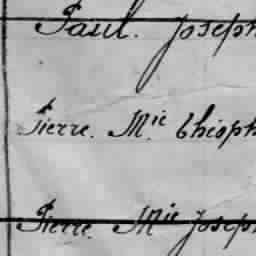 Paul. Joseph
Pierre. M.ie Théoph
Pierre. Mie Joseph